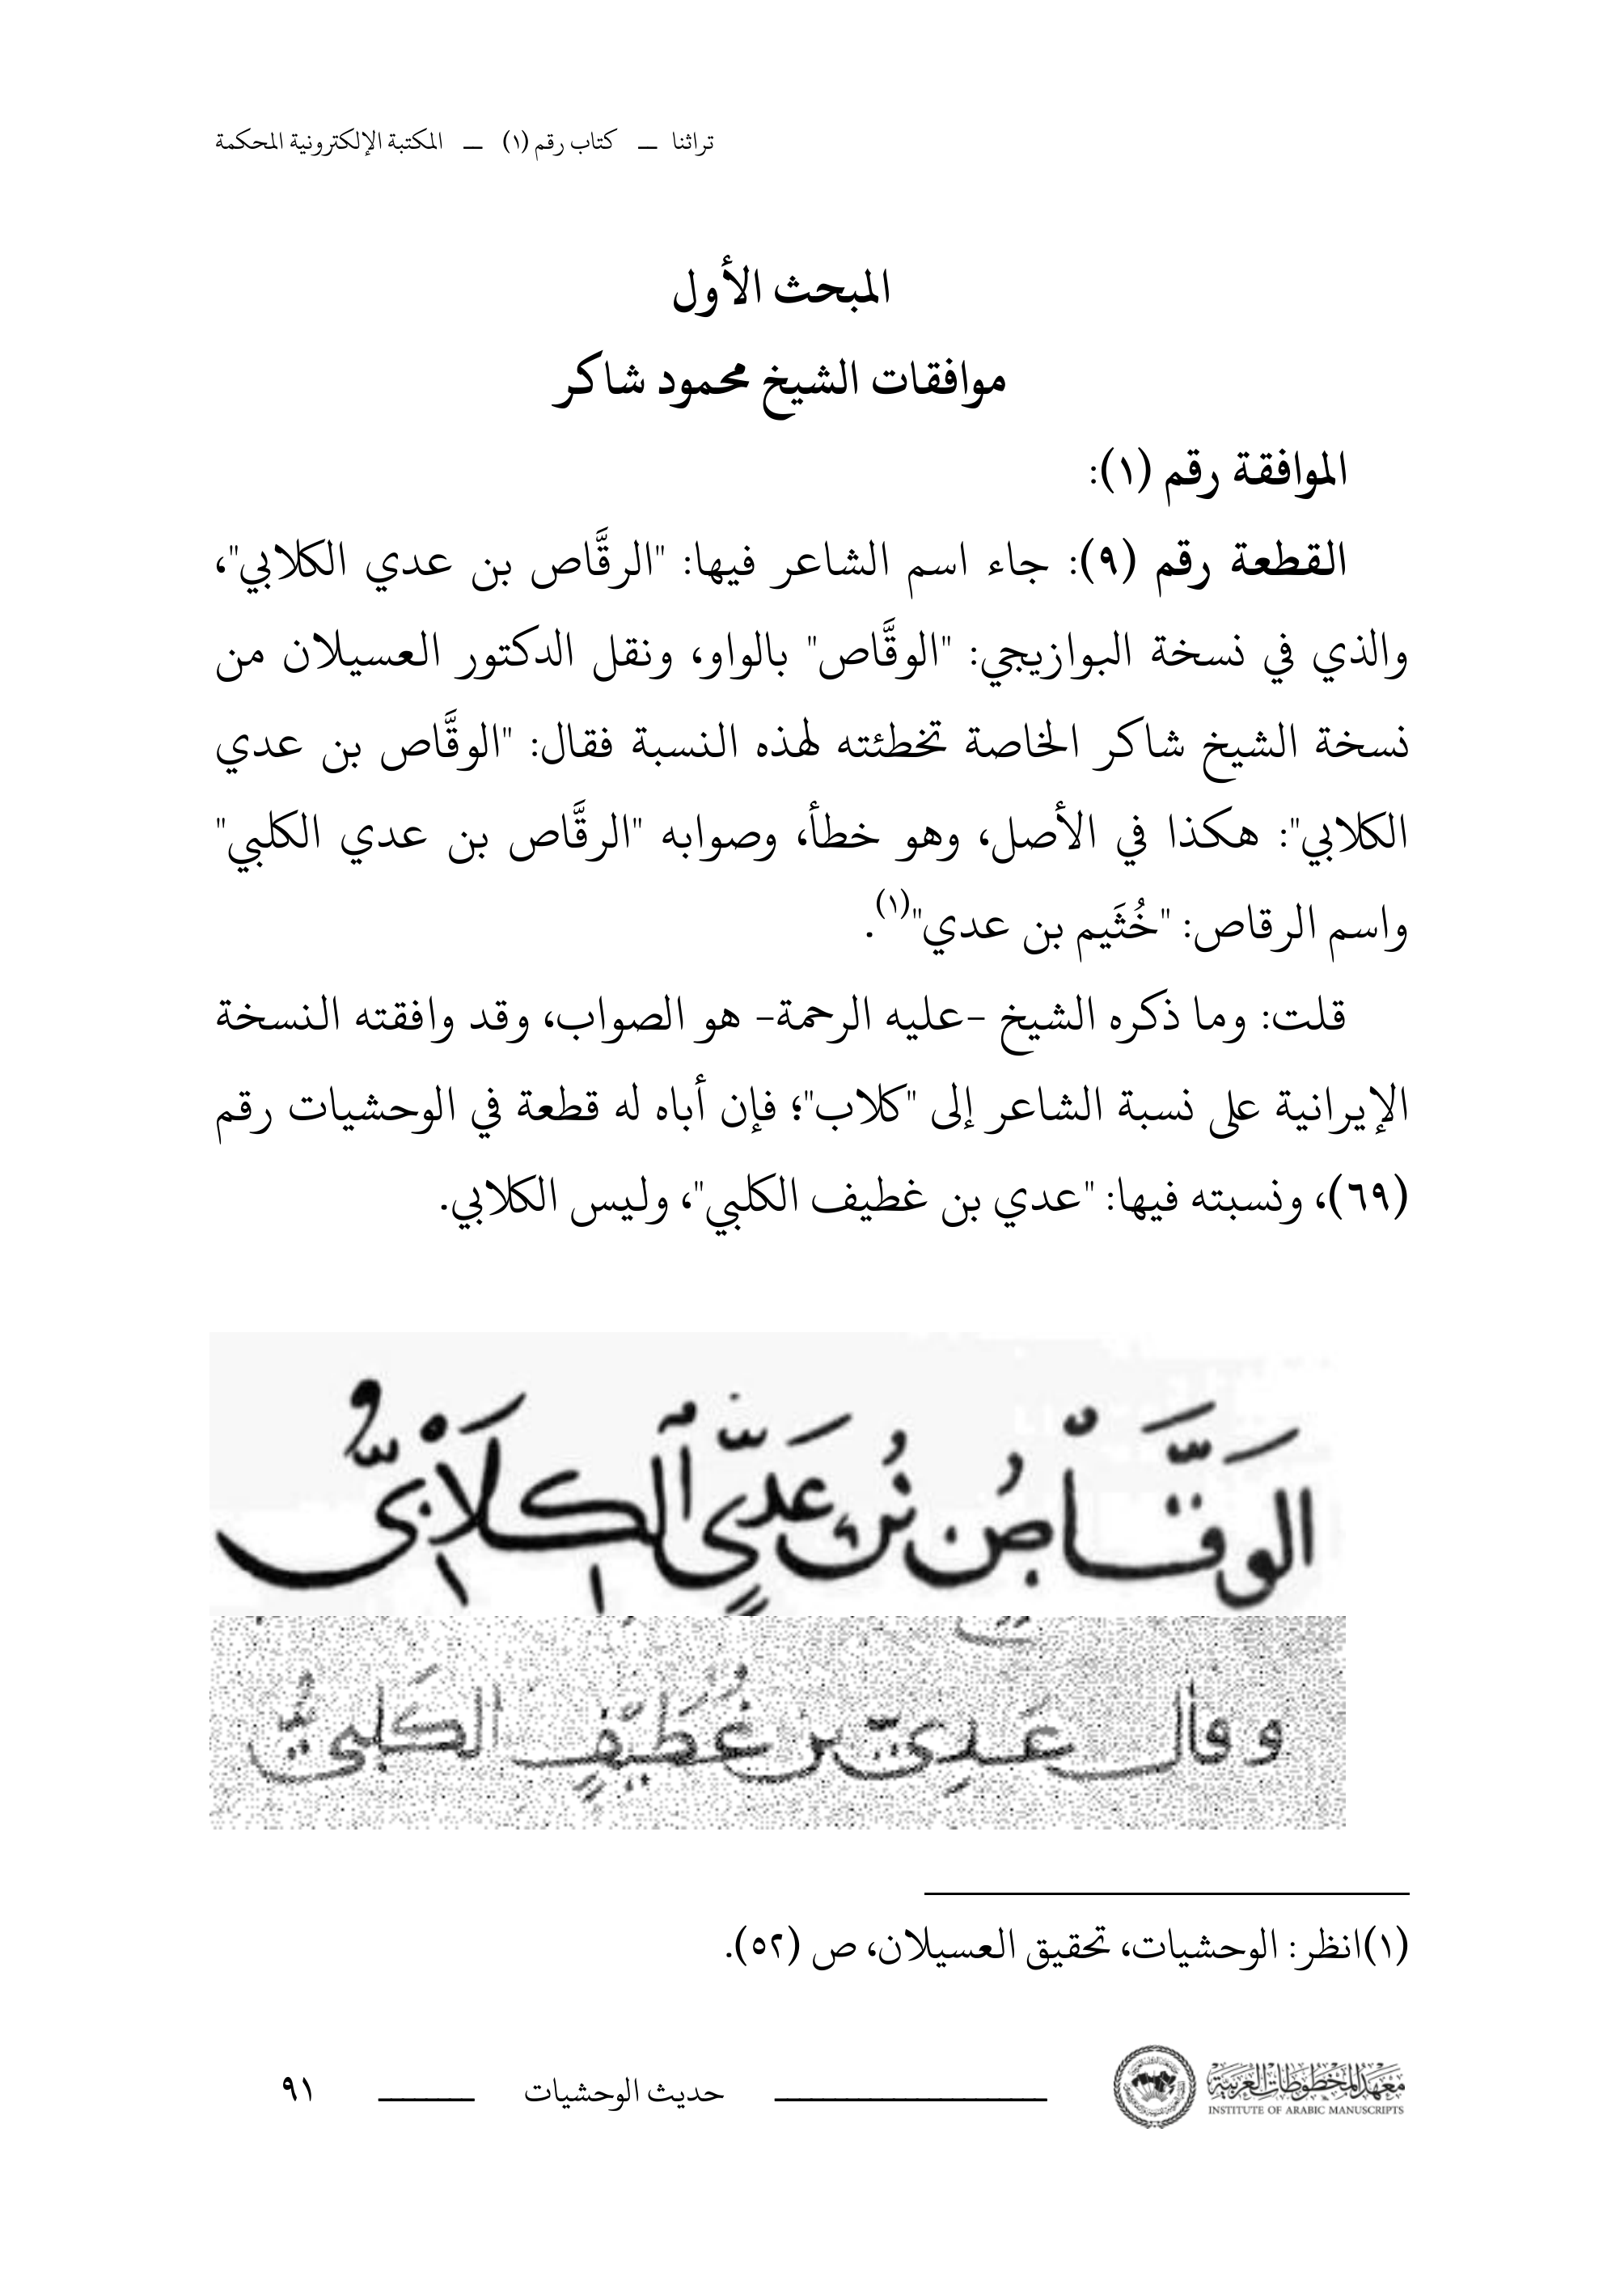 تراثنا — كتاب رقم (١) — المكتبة الإلكترونية المحكمة
المبحث الأول
موافقات الشيخ محمود شاكر
الموافقة رقم (١):
القطعة رقم (٩): جاء اسم الشاعر فيها: "الرقَّاص بن عدي الكلابي"،
والذي في نسخة البوازيجي: "الوقَّاص" بالواو، ونقل الدكتور العسيلان من
نسخة الشيخ شاكر الخاصة تخطئته لهذه النسبة فقال: "الوقَّاص بن عدي
الكلابي": هكذا في الأصل، وهو خطأ، وصوابه "الرقَّاص بن عدي الكلبي"
واسم الرقاص: "خُثَيم بن عدي"(١).
قلت: وما ذكره الشيخ -عليه الرحمة- هو الصواب، وقد وافقته النسخة
الإيرانية على نسبة الشاعر إلى "كلاب"؛ فإن أباه له قطعة في الوحشيات رقم
(٦٩)، ونسبته فيها: "عدي بن غطيف الكلبي"، وليس الكلابي.
الوَقَّاصُ بْنُ عَدِيٍّ الْكِلَابِيُّ
وقال عَدِيّ بن غُطَيْفٍ الكَلبيُّ
(١)انظر: الوحشيات، تحقيق العسيلان، ص (٥٢).
معهد المخطوطات العربية
INSTITUTE OF ARABIC MANUSCRIPTS
حديث الوحشيات
٩١